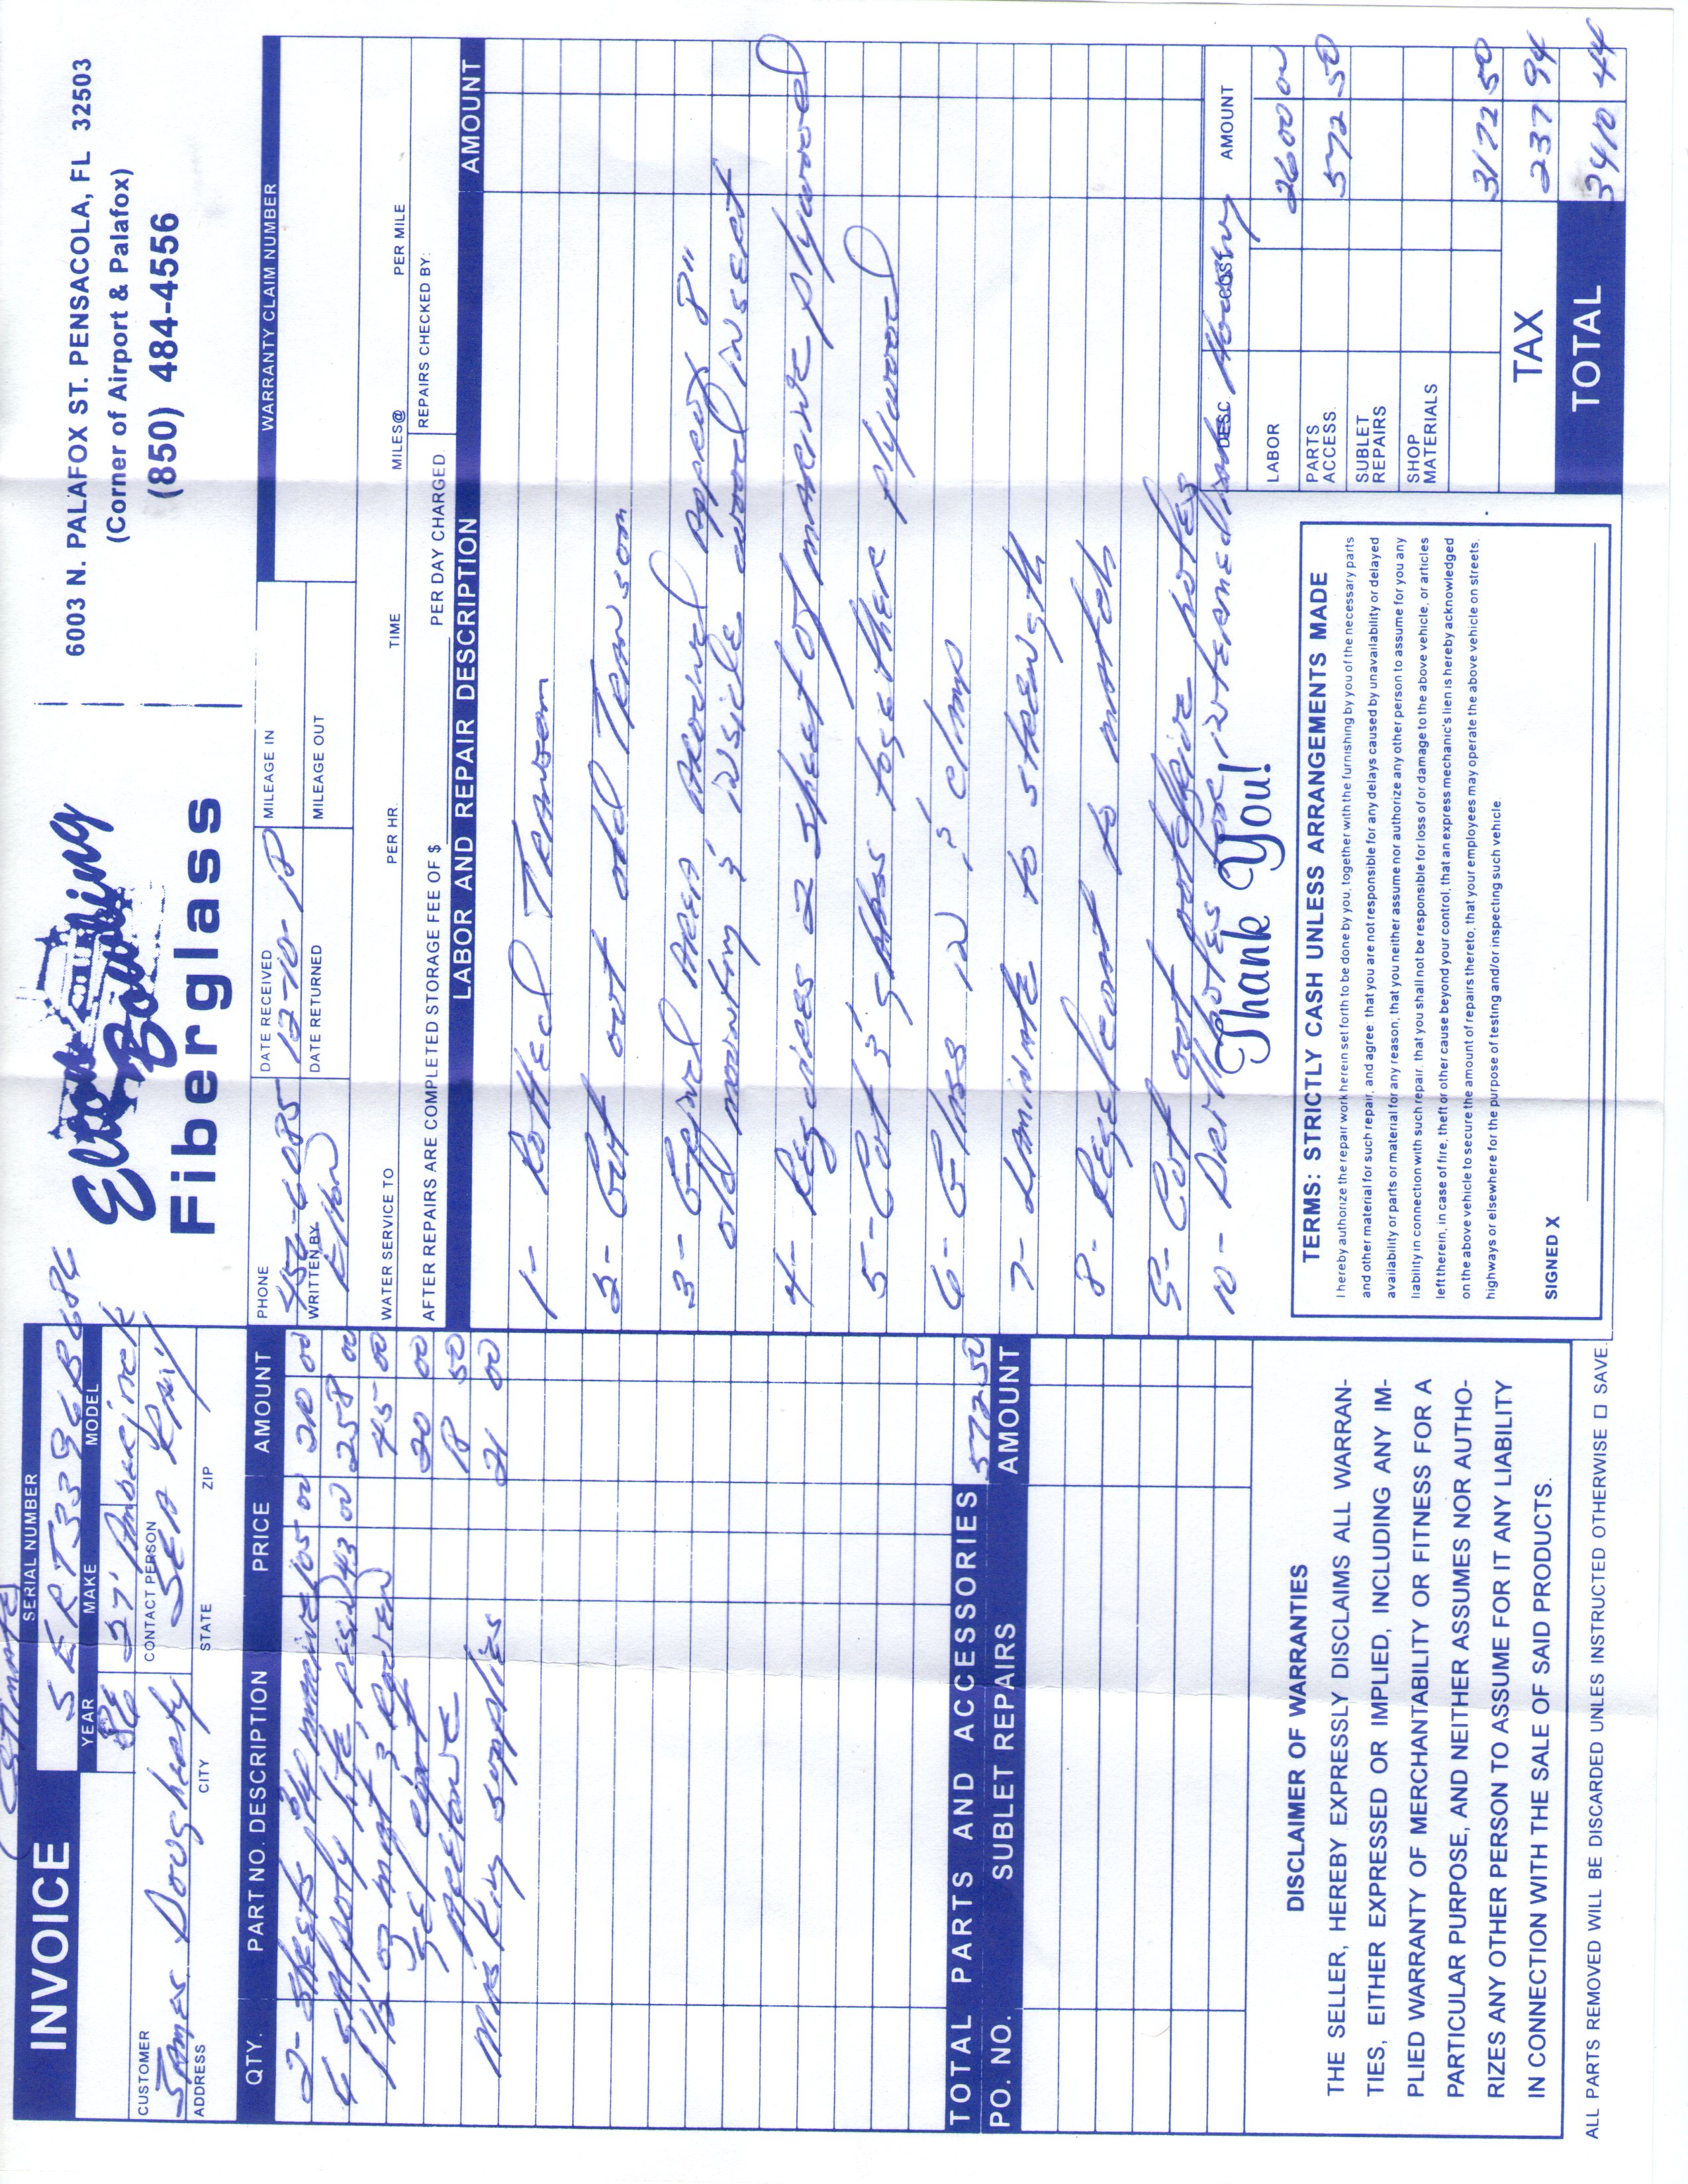 Estimate
INVOICE
SERIAL NUMBER
SERT3396B686
YEAR
MAKE
MODEL
86
27' Amberjack
CUSTOMER
CONTACT PERSON
James Dougherty
SEA Ray
ADDRESS
CITY
STATE
ZIP
QTY.
PART NO. DESCRIPTION
PRICE
AMOUNT
2- sheets 3/4 marine 105 00 210 00
6 gal poly lite resin 43 00 258 00
1 1/2 oz mat & roven 45 00
gel coat 20 00
Acetone 18 50
Masking supplies 21 00
TOTAL PARTS AND ACCESSORIES 572 50
PO. NO.
SUBLET REPAIRS
AMOUNT
DISCLAIMER OF WARRANTIES
THE SELLER, HEREBY EXPRESSLY DISCLAIMS ALL WARRAN-
TIES, EITHER EXPRESSED OR IMPLIED, INCLUDING ANY IM-
PLIED WARRANTY OF MERCHANTABILITY OR FITNESS FOR A
PARTICULAR PURPOSE, AND NEITHER ASSUMES NOR AUTHO-
RIZES ANY OTHER PERSON TO ASSUME FOR IT ANY LIABILITY
IN CONNECTION WITH THE SALE OF SAID PRODUCTS.
ALL PARTS REMOVED WILL BE DISCARDED UNLES INSTRUCTED OTHERWISE □ SAVE.
Fiberglass
6003 N. PALAFOX ST. PENSACOLA, FL 32503
(Corner of Airport & Palafox)
(850) 484-4556
PHONE
DATE RECEIVED
MILEAGE IN
WARRANTY CLAIM NUMBER
456-6085
12-10-18
WRITTEN BY
DATE RETURNED
MILEAGE OUT
Elton
WATER SERVICE TO
PER HR
TIME
MILES@
PER MILE
AFTER REPAIRS ARE COMPLETED STORAGE FEE OF $
PER DAY CHARGED.
REPAIRS CHECKED BY:
LABOR AND REPAIR DESCRIPTION
AMOUNT
1- Rotted Transom
2- Cut out old Transom
3- Grind Area Around approx 8"
old mounting & inside wood insert
4- Requires 2 sheet of marine plywood
5- Cut & glass together plywood
6- Glass in & clamp
7- Laminate to strength
8- Regelcoat to match
9- Cut out outdrive holes
10- Drill holes for intermediate Housing
Thank You!
TERMS: STRICTLY CASH UNLESS ARRANGEMENTS MADE
I hereby authorize the repair work herein set forth to be done by you, together with the furnishing by you of the necessary parts
and other material for such repair, and agree: that you are not responsible for any delays caused by unavailability or delayed
availability or parts or material for any reason; that you neither assume nor authorize any other person to assume for you any
liability in connection with such repair, that you shall not be responsible for loss of or damage to the above vehicle, or articles
left therein, in case of fire, theft or other cause beyond your control, that an express mechanic's lien is hereby acknowledged
on the above vehicle to secure the amount of repairs thereto, that your employees may operate the above vehicle on streets,
highways or elsewhere for the purpose of testing and/or inspecting such vehicle.
SIGNED X
DESC.
COST
AMOUNT
LABOR 2600 00
PARTS
ACCESS. 572 50
SUBLET
REPAIRS
SHOP
MATERIALS
3172 50
TAX 237 94
TOTAL 3410 44